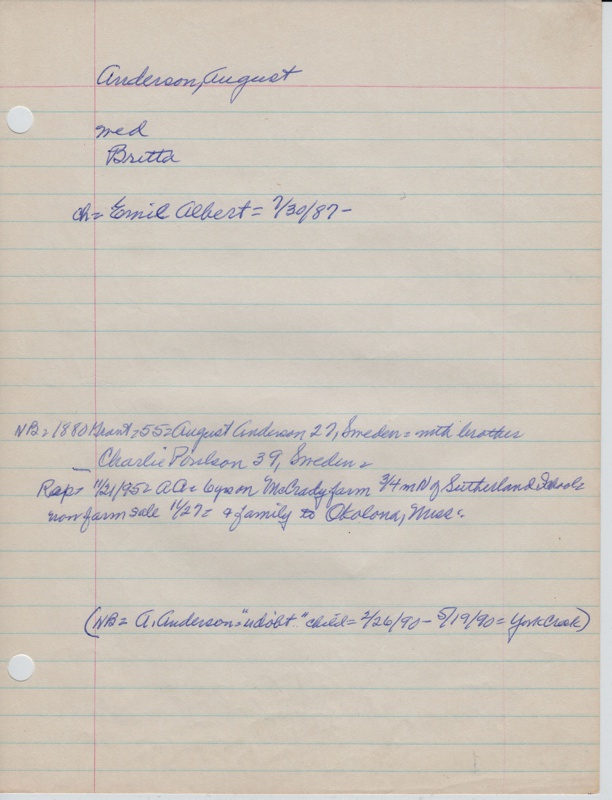 Anderson, August
med
Britta
ch= Emil Albert = 7/30/87-
NB= 1880 Grant = 55 = August Anderson 27, Sweden = with brother
Charlie Poulson 39, Sweden =
Rep= 11/21/95 = AA = 6 yrs on McCrady farm 3/4 m N of Sutherland School =
now farm sale 11/27 = & family to Okolona, Miss.
(NB= A. Anderson = "udöbt" child = 2/26/90 - 5/19/90 = York Creek)